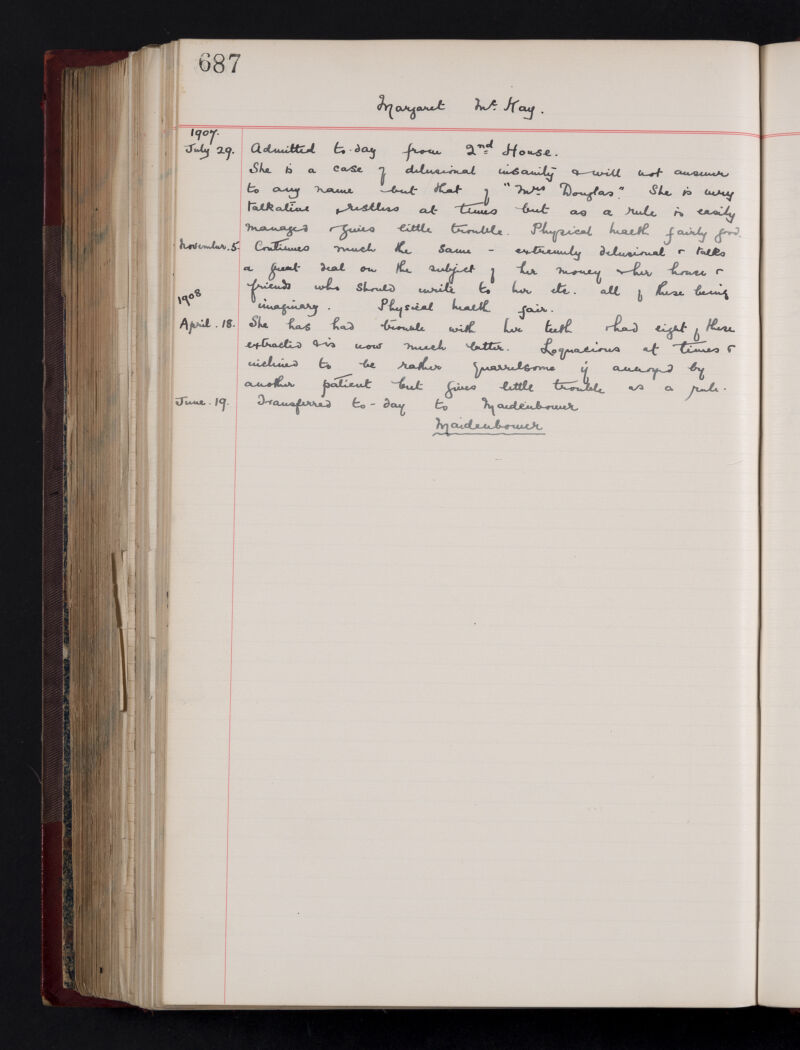 687
Margaret McKay.
1907.
July 29. Admitted to-day from 2nd House.
She is a case of delusional insanity & will not answer
to any name but that of "Mrs Douglas". She is very
talkative & restless at times but as a rule is easily
managed & gives little trouble. Physical health fairly good.
November. 5. Continues much the same - extremely delusional & talks
a great deal on the subject of her money & her house &
friends who should write to her etc. all of these being
1908
imaginary. Physical health fair.
April. 18. She has had trouble with her teeth & had eight of these
extracted & is now much better. Loquacious at times &
inclined to be rather quarrelsome if annoyed by
another patient but gives little trouble as a rule.
June. 19. Transferred to-day to Maidenbower
Maidenbower